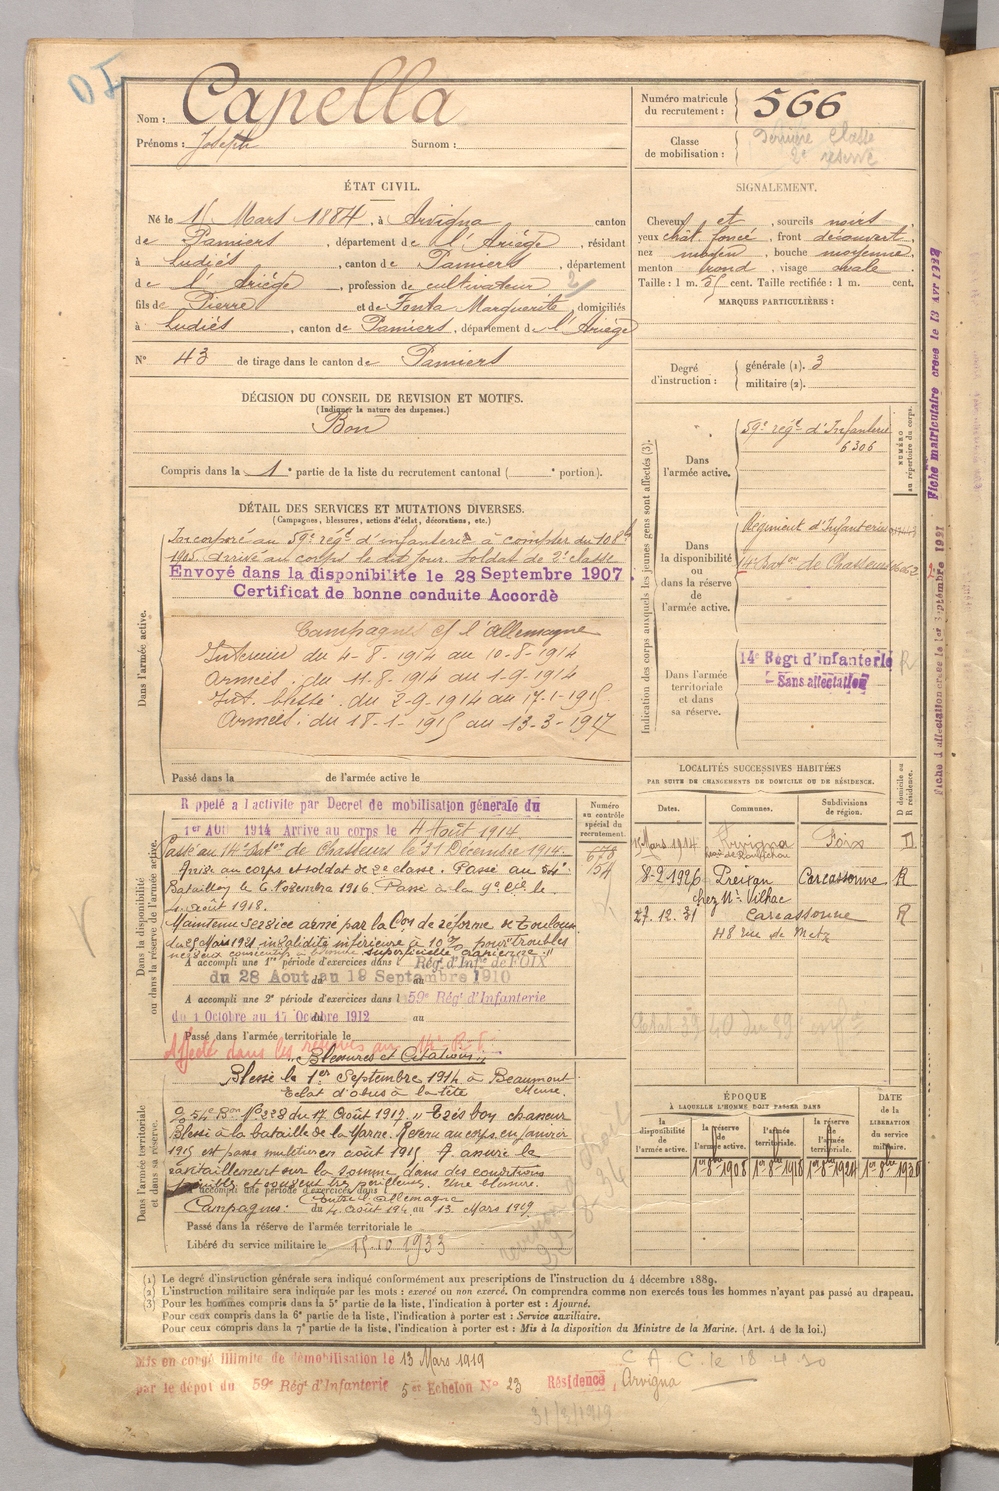 Nom : Capella
Prénoms : Joseph Surnom :
Numéro matricule du recrutement : 566
Classe de mobilisation : Dernière classe
2e réserve
ÉTAT CIVIL.
Né le 15 Mars 1884, à Arvigna canton
de Pamiers, département de l'Ariège, résidant
à Ludiès, canton de Pamiers, département
de l'Ariège, profession de cultivateur 2
fils de Pierre et de Fonta Marguerite, domiciliés
à Ludiès, canton de Pamiers, département de l'Ariège
N° 43 de tirage dans le canton de Pamiers
SIGNALEMENT.
Cheveux et, sourcils noirs
yeux chât. foncé, front découvert,
nez moyen, bouche moyenne,
menton rond, visage ovale
Taille : 1 m. 55 cent. Taille rectifiée : 1 m. cent.
MARQUES PARTICULIÈRES :
Degré d'instruction : générale (1). 3
militaire (2).
DÉCISION DU CONSEIL DE REVISION ET MOTIFS.
(Indiquer la nature des dispenses.)
Bon
Compris dans la 1e partie de la liste du recrutement cantonal ( e portion).
DÉTAIL DES SERVICES ET MUTATIONS DIVERSES.
(Campagnes, blessures, actions d'éclat, décorations, etc.)
Dans l'armée active.
Incorporé au 59e régt d'infanterie à compter du 10 8bre
1905. Arrivé au corps le dit jour soldat de 2e classe
Envoyé dans la disponibilité le 28 Septembre 1907.
Certificat de bonne conduite Accordé
Campagnes Ct l'Allemagne
Intérieur du 4-8-1914 au 10-8-1914
Armées. du 11-8-1914 au 1-9-1914
Int. blessé. du 2-9-1914 au 17-1-1915
Armées. du 18-1-1915 au 13-3-1917
Passé dans la de l'armée active le
Indication des corps auxquels les jeunes gens sont affectés (3).
Dans l'armée active.
59e régt d'Infanterie
6306
NUMÉRO au répertoire du corps.
Dans la disponibilité ou dans la réserve de l'armée active.
Régiment d'Infanterie
14 Baton de Chasseurs
Dans l'armée territoriale et dans sa réserve.
14e Régt d'Infanterie R
- Sans affectation
LOCALITÉS SUCCESSIVES HABITÉES
PAR SUITE DE CHANGEMENTS DE DOMICILE OU DE RÉSIDENCE.
Dates. Communes. Subdivisions de région. D domicile ou R résidence.
15 Mars 1914 Arvigna Foix D
8-2-1926 Preixan Carcassonne R
chez Mr Vilhac
27.12.31 Carcassonne R
48 rue de Metz
Dans la disponibilité ou dans la réserve de l'armée active.
Numéro au contrôle spécial du recrutement.
678
154
Rappelé à l'activité par Decret de mobilisation générale du
1er AOUT 1914 Arrivé au corps le 4 Août 1914.
Passé au 14e Baton de Chasseurs le 31 Décembre 1914.
Arrivé au corps et soldat de 2e classe. Passé au 54e
Bataillon le 6 Novembre 1916. Passé à la 9e Cie le
4 Août 1918.
Maintenu service armé par la Con de réforme de Toulouse
du 25 Mars 1921 invalidité inférieure à 10 % pour troubles
nerveux consécutifs à blessure superficielle crânienne."
A accompli une 1re période d'exercices dans l Régt d'Infie de FOIX
du 28 Aout au 19 Septembre 1910
A accompli une 2e période d'exercices dans l 59e Régt d'Infanterie
du 1 Octobre au 17 Octobre 1912 au
Passé dans l'armée territoriale le
Affecté dans les réserves au 14e R.I.
Dans l'armée territoriale et dans sa réserve.
"Blessures et Citations"
Blessé le 1er Septembre 1914 à Beaumont
Eclat d'obus à la tête Meuse.
O 54e Bon N° 328 du 17 Août 1917. "Très bon chasseur
Blessé à la bataille de la Marne. Revenu au corps en janvier
1915 est passé muletier en août 1915. A assuré le
ravitaillement sur la Somme, dans des conditions
pénibles et souvent très périlleuses. Une blessure.
A accompli une période d'exercices dans l
Contre l'Allemagne
Campagnes : du 4 Août 1914 au 13 Mars 1919
Passé dans la réserve de l'armée territoriale le
Libéré du service militaire le 15-10-1933
ÉPOQUE
À LAQUELLE L'HOMME DOIT PASSER DANS
la disponibilité de l'armée active. la réserve de l'armée active. l'armée territoriale. la réserve de l'armée territoriale.
DATE de la LIBÉRATION du service militaire.
1er 8bre 1908 1er 8bre 1918
(1) Le degré d'instruction générale sera indiqué conformément aux prescriptions de l'instruction du 4 décembre 1889.
(2) L'instruction militaire sera indiquée par les mots : exercé ou non exercé. On comprendra comme non exercés tous les hommes n'ayant pas passé au drapeau.
(3) Pour les hommes compris dans la 5e partie de la liste, l'indication à porter est : Ajourné.
Pour ceux compris dans la 6e partie de la liste, l'indication à porter est : Service auxiliaire.
Pour ceux compris dans la 7e partie de la liste, l'indication à porter est : Mis à la disposition du Ministre de la Marine. (Art. 4 de la loi.)
Mis en congé illimité de démobilisation le 13 Mars 1919
par le dépôt du 59e Rég. d'Infanterie 5er Echelon N° 23 Résidence, Arvigna
C.A.C. le 18.4.30
31/3/1919
Fiche matriculaire créée le 13 Avr 1932